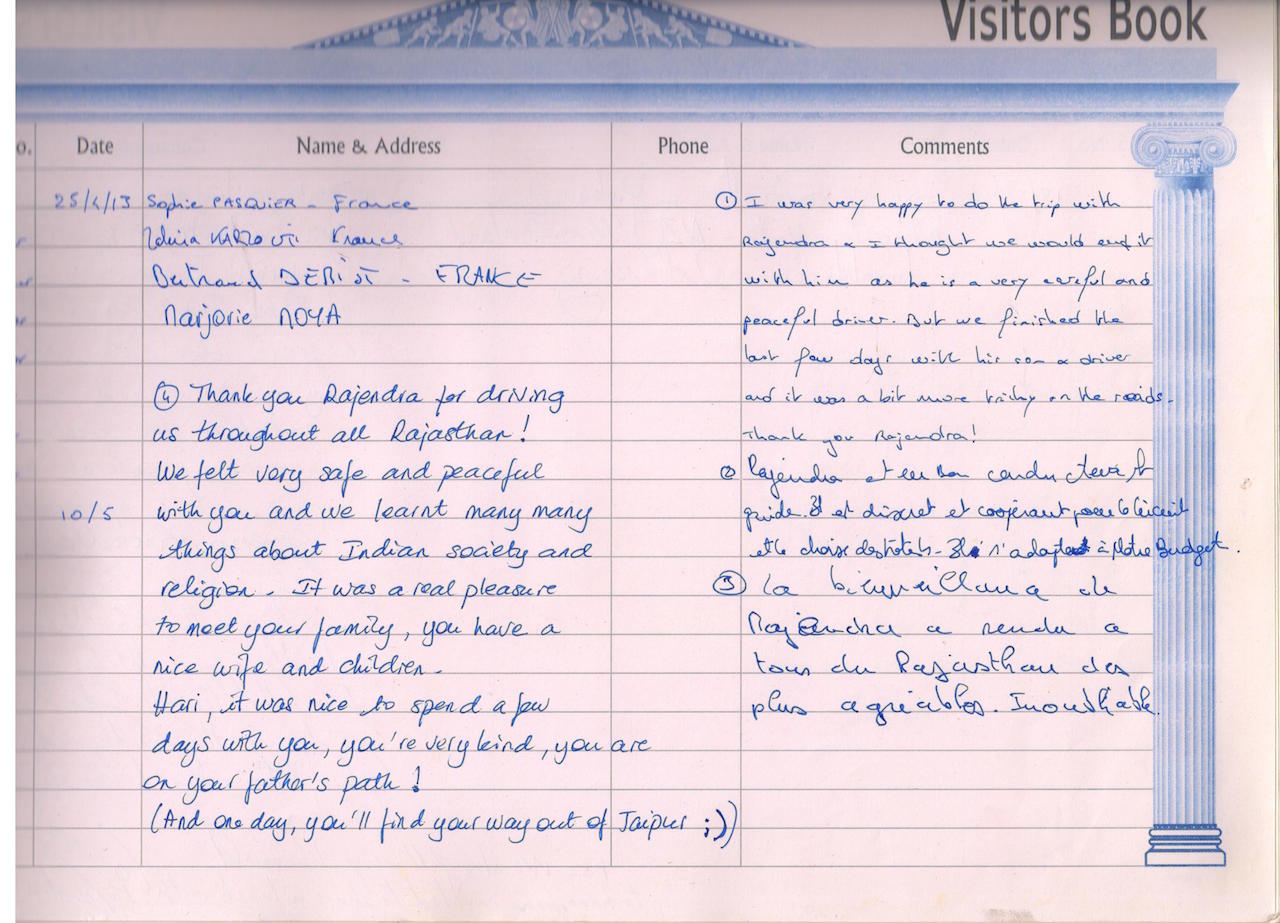 Visitors Book
o. Date Name & Address Phone Comments
25/4/13 Sophie PASQUIER - France
France
Bertrand - FRANCE
Marjorie MOYA
④ Thank you Rajendra for driving
us throughout all Rajasthan!
We felt very safe and peaceful
10/5 with you and we learnt many many
things about Indian society and
religion. It was a real pleasure
to meet your family, you have a
nice wife and children.
Hari, it was nice to spend a few
days with you, you're very kind, you are
on your father's path!
(And one day, you'll find your way out of Jaipur ;))
① I was very happy to do the trip with
Rajendra & I thought we would end it
with him as he is a very careful and
peaceful driver. But we finished the
last few days with his son & driver
and it was a bit more tricky on the roads.
Thank you Rajendra!
② Rajendra est un bon conducteur et
guide. Il est discret et coopérant pour le circuit
et le choix des hotels. Il s'adapte à Notre Budget.
③ La bienveillance de
Rajendra a rendu ce
tour du Rajasthan des
plus agréables. Inoubliable.